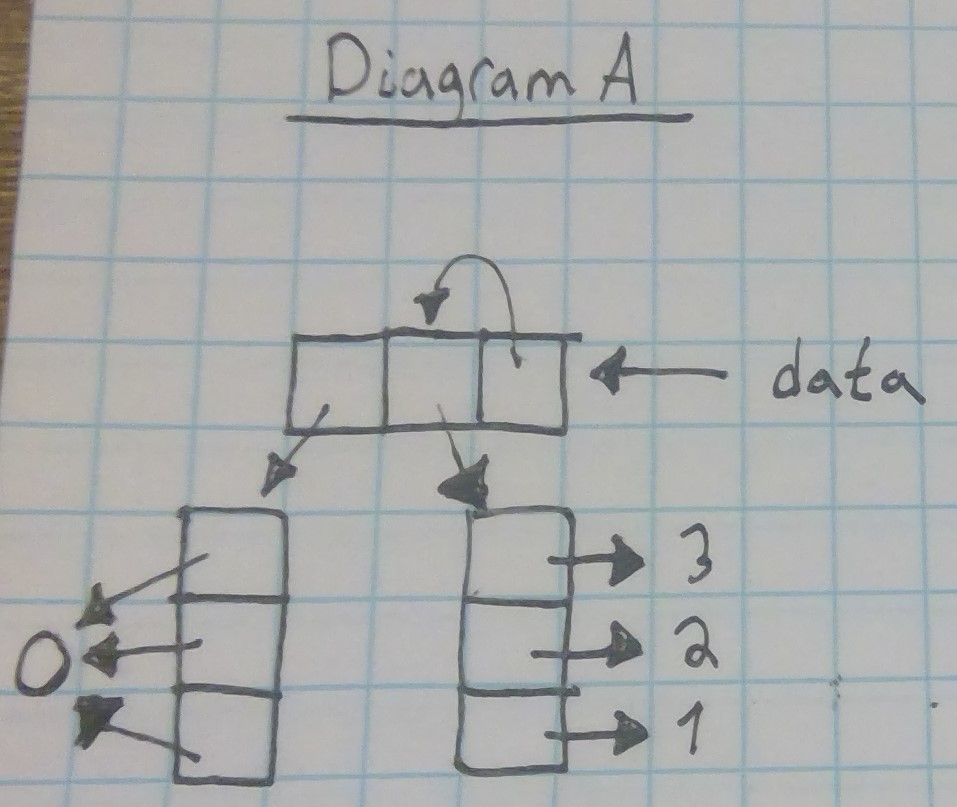 Diagram A
data
3
0
2
1